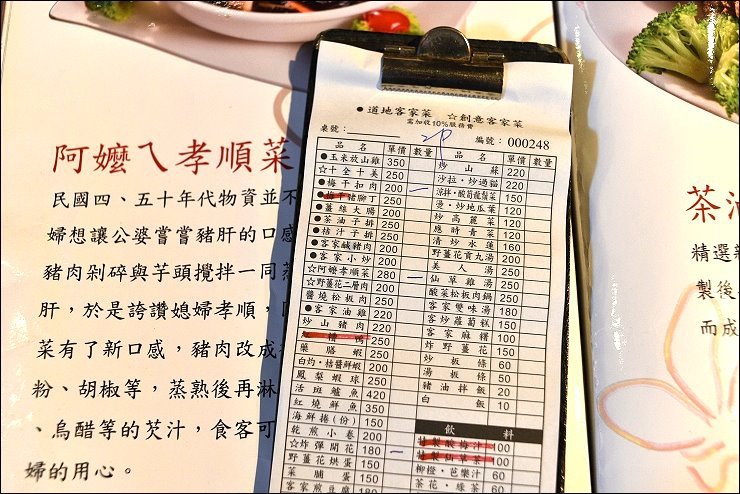 阿嬤ㄟ孝順菜
民國四、五十年代物資並不
婦想讓公婆嘗嘗豬肝的口感
豬肉剁碎與芋頭攪拌一同蒸
肝，於是誇讚媳婦孝順，
菜有了新口感，豬肉改成
粉、胡椒等，蒸熟後再淋
、烏醋等的芡汁，食客可
婦的用心。
●道地客家菜 ☆創意客家菜
需加收10%服務費
桌號： 編號：000248
品名 單價 數量 品名 單價 數量
●玉米放山雞 350 炒山蘇 220
☆十全十美 250 沙拉·炒過貓 220
●梅干扣肉 200 涼拌·酸筍龍鬚菜 150
250 燙·炒地瓜葉 120
●薑絲大腸 200 炒高麗菜 120
●茶油子排 250 應時青菜 120
●桔汁子排 250 清炒水蓮 160
●客家鹹豬肉 200 野薑花貢丸湯 200
●客家小炒 200 美人湯 250
☆阿嬤孝順菜 280 仙草雞湯 250
☆野薑花二層肉 200 酸菜松板肉鍋 250
醬燒松板肉 250 客家雙味湯 180
●客家油雞 220 客炒蘿蔔糕 150
炒山豬肉 220 客家麻糬 100
250 炸野薑花 150
藥膳蝦 250 炒粄條 60
白灼·桔醬鮮蝦 200 湯粄條 50
鳳梨蝦球 250 豬油拌飯 20
活斑鱸魚 420 白飯 10
紅燒鮮魚 350
海鮮捲(份) 150 飲料
乾煎小卷 200 特製酸梅汁 100
☆炸彈開花 180 特製仙草茶 100
野薑花烘蛋 180 柳橙·芭樂汁 60
菜脯蛋 150 茶花·綠茶 60
客家煎豆腐 180
茶油
精選新
製後
而成